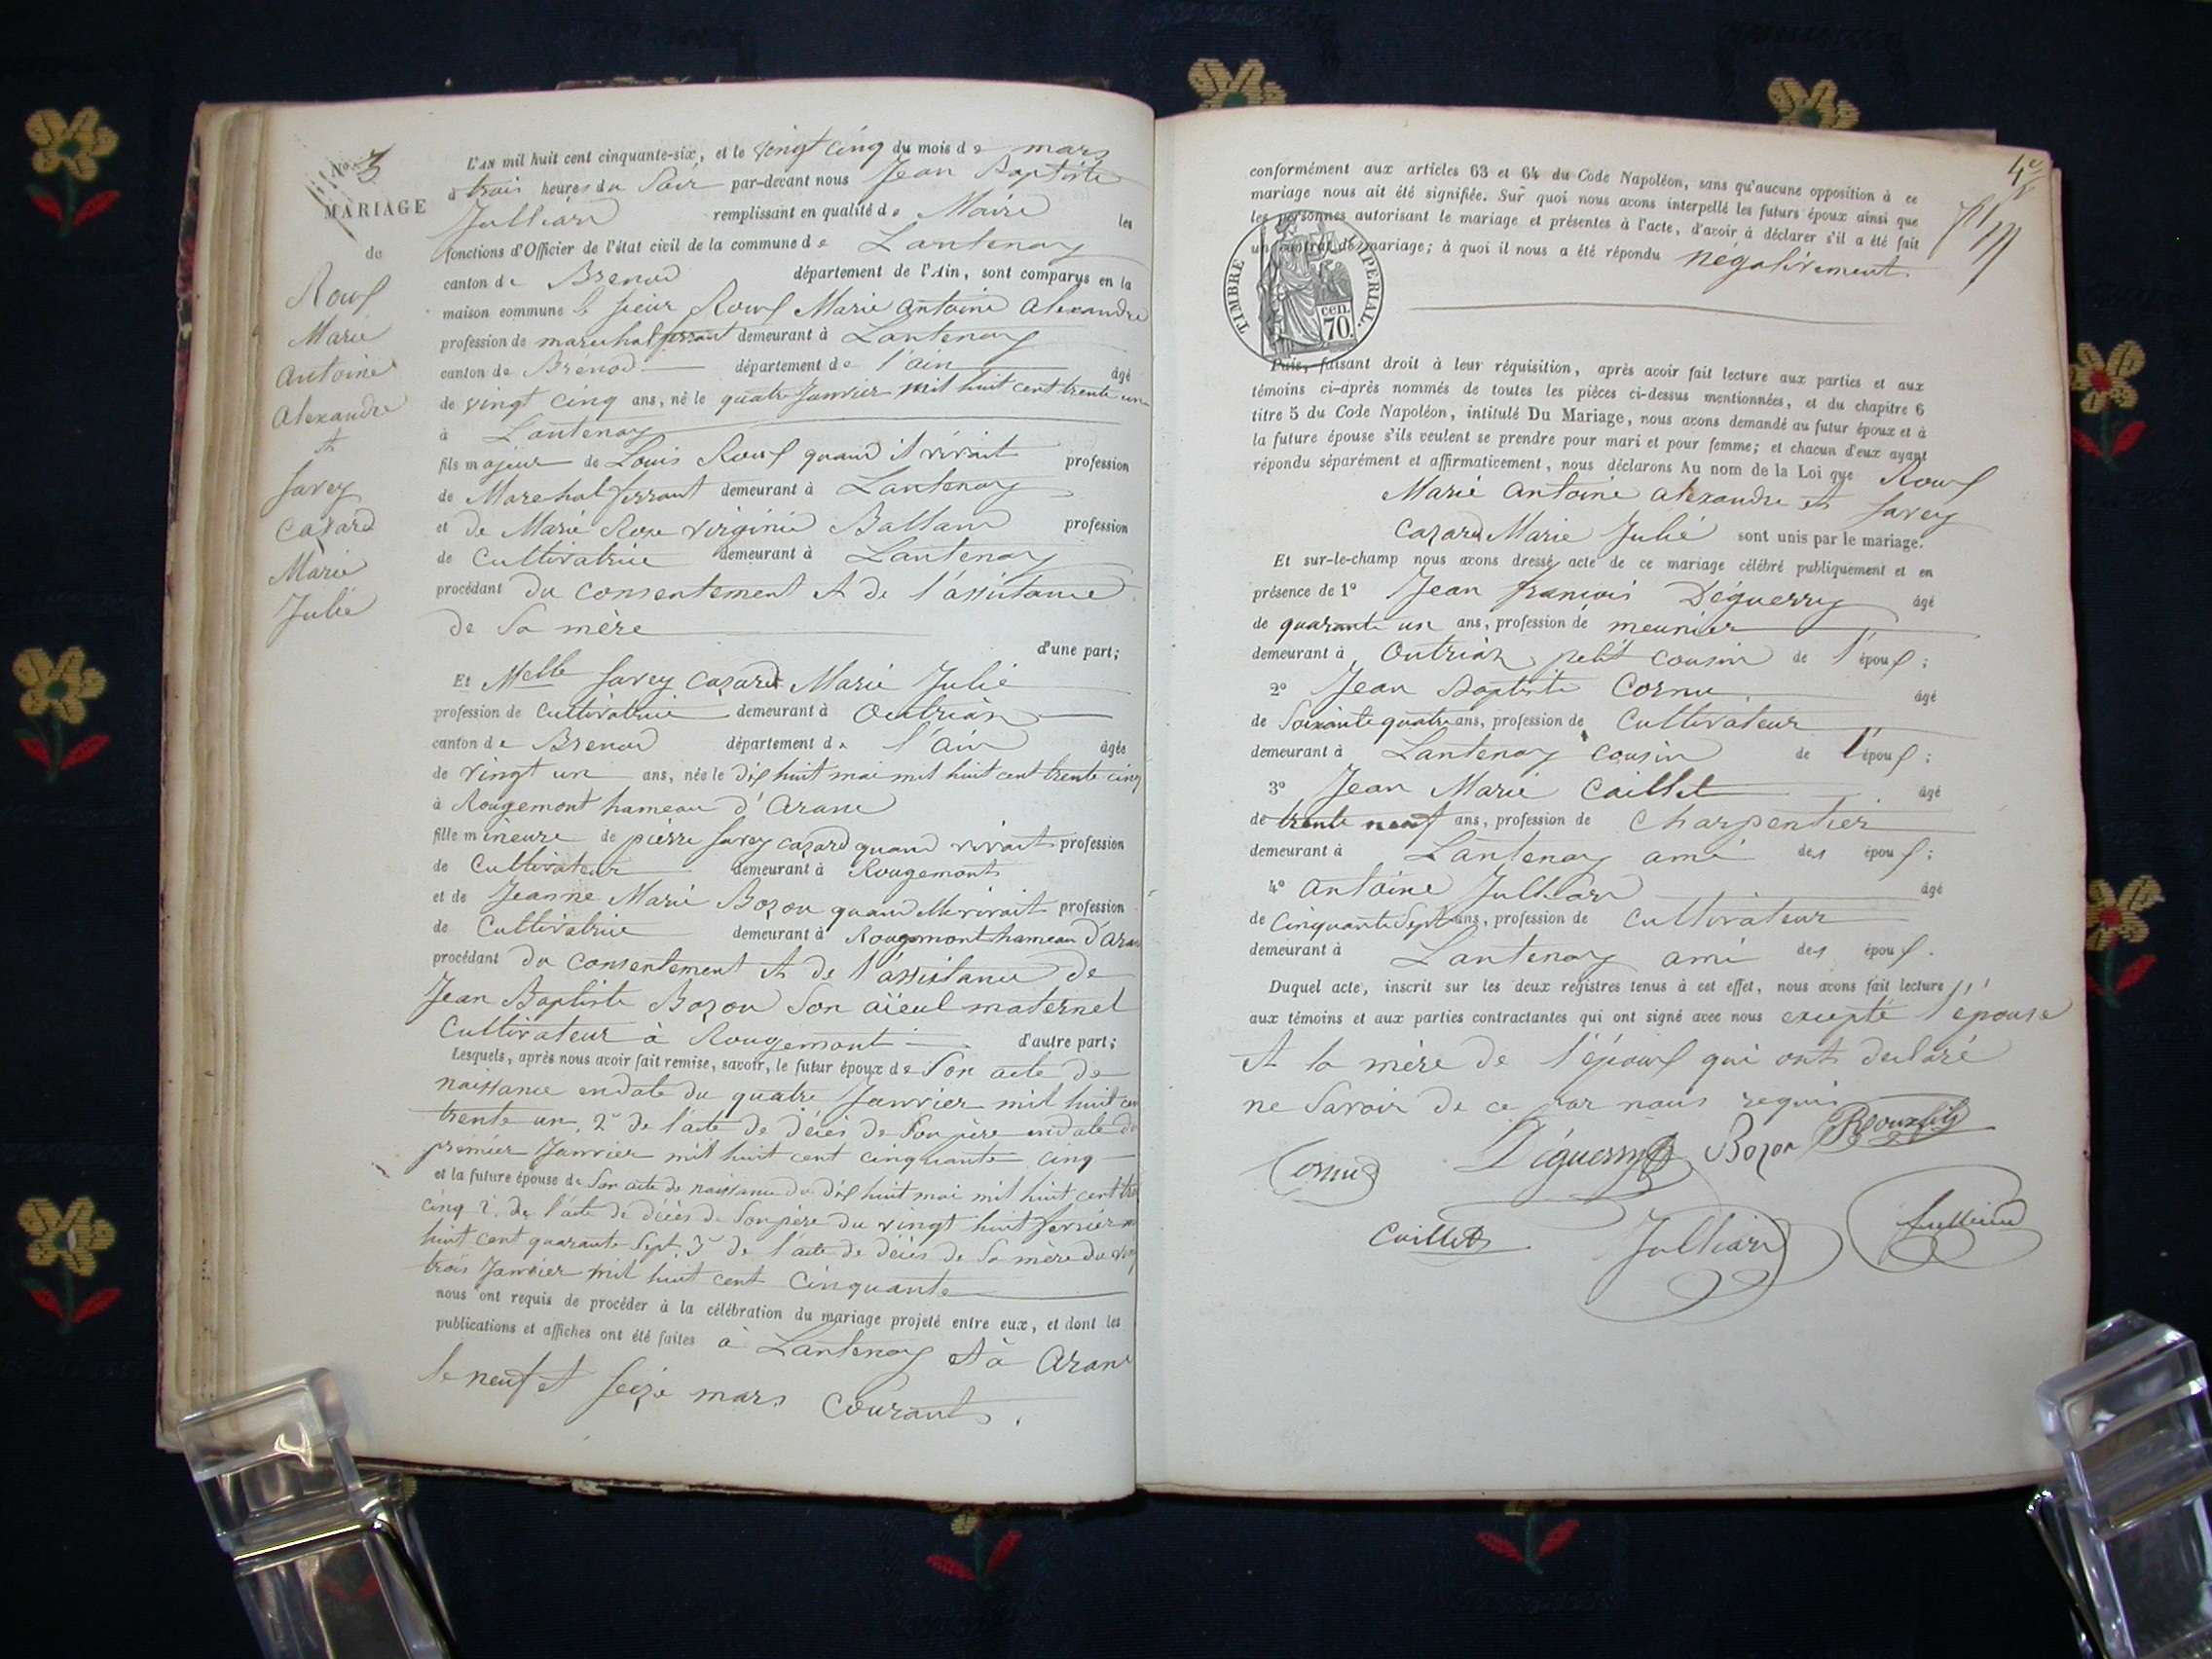 No. 3
MARIAGE
de
Roux
Marie
Antoine
Alexandre
et
Savey
Cazard
Marie
Julie
L'AN mil huit cent cinquante-six, et le vingt cinq du mois de mars
à trois heures du Soir par-devant nous Jean Baptiste
Julliard remplissant en qualité de Maire les
fonctions d'Officier de l'état civil de la commune de Lantenay
canton de Brenod département de l'Ain, sont comparus en la
maison commune le sieur Roux Marie Antoine Alexandre
profession de marechal ferrant demeurant à Lantenay
canton de Brénod département de l'ain âgé
de vingt cinq ans, né le quatre Janvier mil huit cent trente un
à Lantenay
fils majeur de Louis Roux quand il vivait profession
de Marechal ferrant demeurant à Lantenay
et de Marie Rose Virginie Balland profession
de Cultivatrice demeurant à Lantenay
procédant du consentement et de l'assistance
de Sa mère
d'une part;
Et Melle Savey Cazard Marie Julie
profession de Cultivatrice demeurant à Outriaz
canton de Brenod département de l'Ain âgée
de vingt un ans, née le dix huit mai mil huit cent trente cinq
à Rougemont hameau d'Aranc
fille mineure de pierre Savey cazard quand vivait profession
de Cultivateur demeurant à Rougemont
et de Jeanne Marie Bozon quand elle vivait profession
de Cultivatrice demeurant à Rougemont hameau d'Aran
procédant du consentement et de l'assistance de
Jean Baptiste Bozon Son aïeul maternel
Cultivateur à Rougemont d'autre part;
Lesquels, après nous avoir fait remise, savoir, le futur époux de Son acte de
naissance en date du quatre Janvier mil huit cen
trente un, 2° de l'acte de décès de Son père en date du
premier Janvier mil huit cent cinquante cinq
et la future épouse de Son acte de naissance du dix huit mai mil huit cent tre
cinq 2° de l'acte de décès de Son père du vingt huit fevrier m
huit cent quarante Sept, 3° de l'acte de décès de Sa mère du vin
trois Janvier mil huit cent Cinquante
nous ont requis de procéder à la célébration du mariage projeté entre eux, et dont les
publications et affiches ont été faites à Lantenay et à Aranc
le neuf et Seize mars Courant.
4e
conformément aux articles 63 et 64 du Code Napoléon, sans qu'aucune opposition à ce
mariage nous ait été signifiée. Sur quoi nous avons interpellé les futurs époux ainsi que
les personnes autorisant le mariage et présentes à l'acte, d'avoir à déclarer s'il a été fait
un contrat de mariage; à quoi il nous a été répondu négativement.
TIMBRE IMPERIAL.
cen.
70.
Puis, faisant droit à leur réquisition, après avoir fait lecture aux parties et aux
témoins ci-après nommés de toutes les pièces ci-dessus mentionnées, et du chapitre 6
titre 5 du Code Napoléon, intitulé Du Mariage, nous avons demandé au futur époux et à
la future épouse s'ils veulent se prendre pour mari et pour femme; et chacun d'eux ayant
répondu séparément et affirmativement, nous déclarons Au nom de la Loi que Roux
Marie Antoine Alexandre et Savey
Cazard Marie Julie sont unis par le mariage.
Et sur-le-champ nous avons dressé acte de ce mariage célébré publiquement et en
présence de 1° Jean françois Déguerry âgé
de quarante un ans, profession de meunier
demeurant à Outriaz petit cousin de l'époux;
2° Jean Baptiste Cornu âgé
de Soixante quatre ans, profession de Cultivateur
demeurant à Lantenay cousin de l'époux;
3° Jean Marie Caillet âgé
de trente neuf ans, profession de Charpentier
demeurant à Lantenay ami des époux;
4° Antoine Julliard âgé
de Cinquante Sept ans, profession de Cultivateur
demeurant à Lantenay ami des époux.
Duquel acte, inscrit sur les deux registres tenus à cet effet, nous avons fait lecture
aux témoins et aux parties contractantes qui ont signé avec nous excepté l'épouse
et la mère de l'époux qui ont declaré
ne Savoir de ce par nous requis
Cornu Déguerry Bozon Roux
Caillet Julliard Julliard